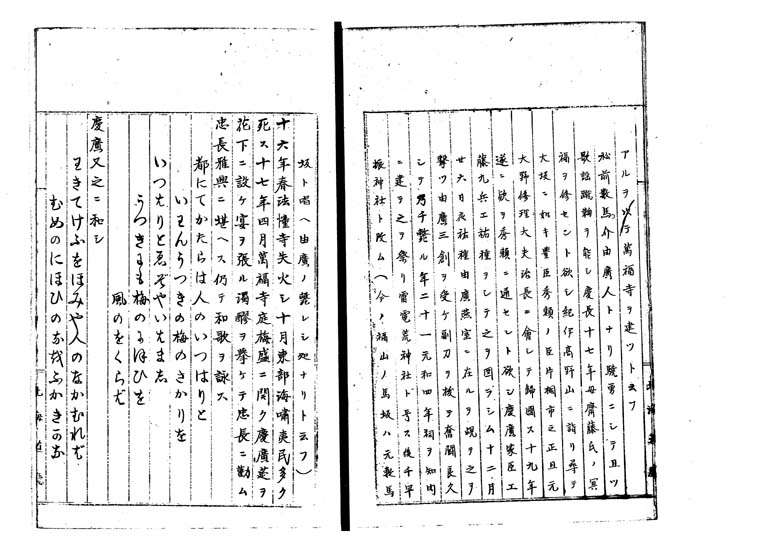 アルヲ以テ萬福寺ヲ建ツト云フ
松前数馬介由廣人トナリ驍勇ニシテ且ツ
歌謡蹴鞠ヲ能シ慶長十七年母齋藤氏ノ冥
福ヲ修セント欲シ紀伊高野山ニ詣リ尋テ
大坂ニ如キ豊臣秀頼ノ臣片桐市之正且元
大野修理大夫治長ニ會シテ歸國ス十九年
遂ニ欵ヲ秀頼ニ通セント欲シ慶廣家臣工
藤九兵工祐種ヲシテ之ヲ図ラシム十二月
廿六日夜祐種由廣燕室ニ在ルヲ覘ヒ之ヲ
撃ツ由廣三創ヲ受ケ副刀ヲ拔テ奮闘良久
シテ乃チ斃ル年二十一元和四年祠ヲ知内
ニ建テ之ヲ祭リ雷電荒神社ト号ス後千早
振神社ト改ム(今ノ福山ノ馬坂ハ元数馬
坂ト唱ヘ由廣ノ斃レシ処ナリト云フ)
十六年春法憧寺失火シ十月東部海嘯夷民多ク
死ス十七年四月萬福寺庭梅盛ニ開ク慶廣莚ヲ
花下ニ設ケ宴ヲ張ル濁醪ヲ挙ケテ忠長ニ勸ム
忠長雅興ニ堪ヘス仍テ和歌ヲ詠ス
都にてかたらは人のいつはりと
いわんうつきの梅のさかりを
いつはりと思ぞやいはまし
うつきにも梅のにほひを
風のをくらば
慶廣又之ニ和シ
わきてけふをほみや人のなかむれば
むめのにほひのなをふかきかな
北海道